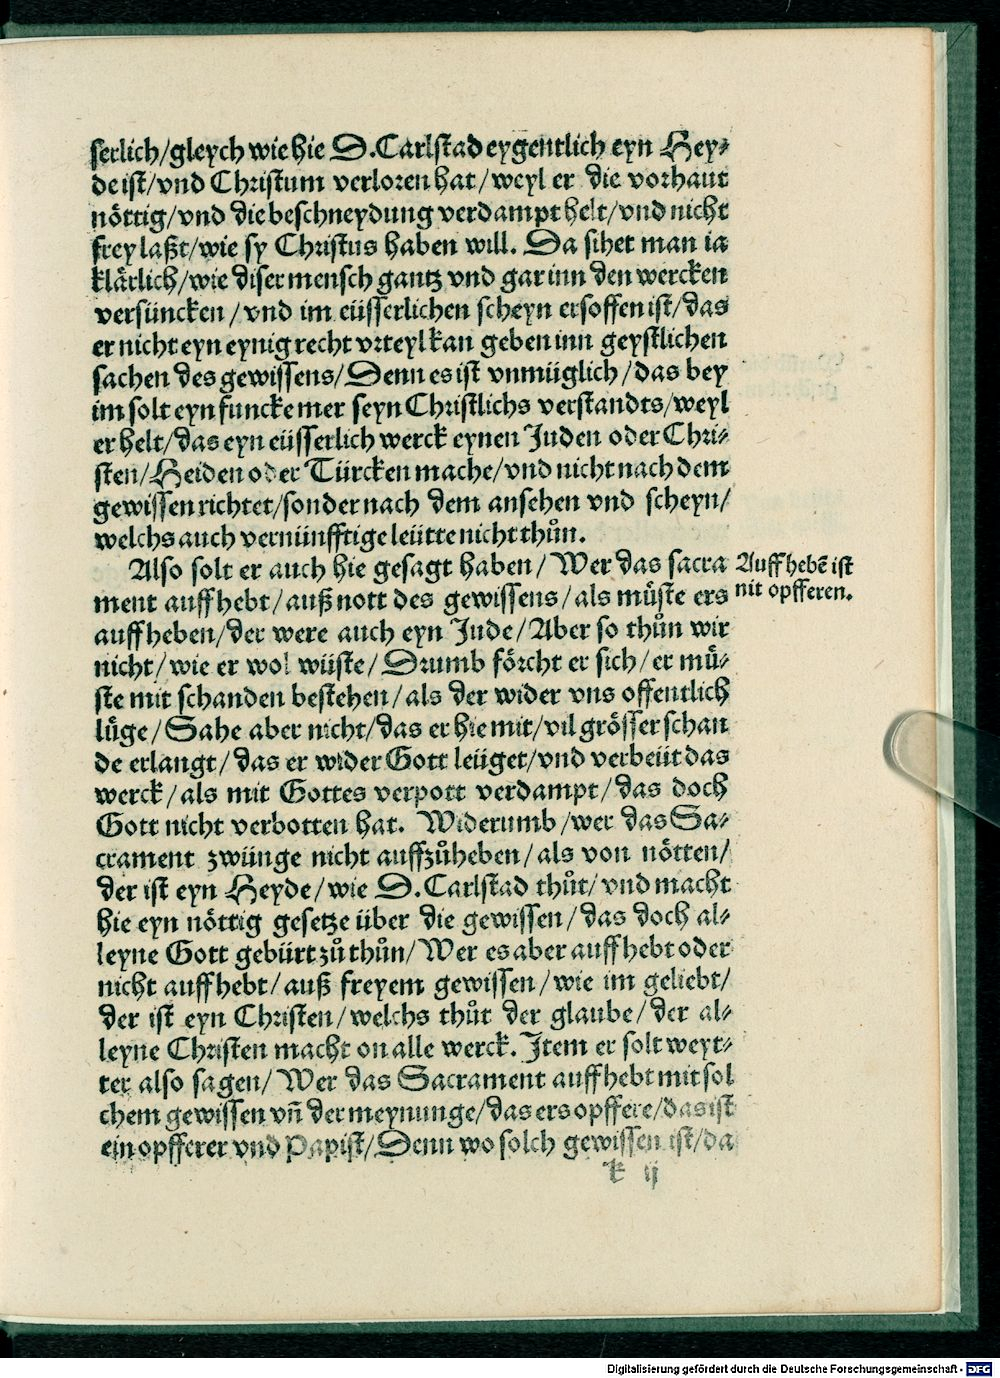 serlich/gleych wie hie D. Carlstad eygentlich eyn Hey⸗
de ist/vnd Christum verloren hat/weyl er die vorhaut
nöttig/vnd die beschneydung verdampt helt/vnd nicht
frey laßt/wie sy Christus haben will. Da sihet man ia
klärlich/wie diser mensch gantz vnd gar inn den wercken
versüncken/vnd im eüsserlichen scheyn ersoffen ist/das
er nicht eyn eynig recht vrteyl kan geben inn geystlichen
sachen des gewissens/Denn es ist vnmüglich/das bey
im solt eyn funcke mer seyn Christlichs verstandts/weyl
er helt/das eyn eüsserlich werck eynen Juden oder Chri⸗
sten/Heiden oder Türcken mache/vnd nicht nach dem
gewissen richtet/sonder nach dem ansehen vnd scheyn/
welchs auch vernünfftige leütte nicht thůn.
Also solt er auch hie gesagt haben/Wer das sacra
ment auffhebt/auß nott des gewissens/als müste ers
auffheben/der were auch eyn Jude/Aber so thůn wir
nicht/wie er wol wüste/Drumb förcht er sich/er mü⸗
ste mit schanden bestehen/als der wider vns offentlich
lüge/Sahe aber nicht/das er hie mit/vil grösser schan
de erlangt/das er wider Gott leüget/vnd verbeüt das
werck/als mit Gottes verpott verdampt/das doch
Gott nicht verbotten hat. Widerumb/wer das Sa⸗
crament zwünge nicht auffzůheben/als von nötten/
der ist eyn Heyde/wie D. Carlstad thůt/vnd macht
hie eyn nöttig gesetze über die gewissen/das doch al⸗
leyne Gott gebürt zů thůn/Wer es aber auffhebt oder
nicht auffhebt/auß freyem gewissen/wie im geliebt/
der ist eyn Christen/welchs thůt der glaube/der al⸗
leyne Christen macht on alle werck. Item er solt weyt⸗
ter also sagen/Wer das Sacrament auffhebt mit sol
chem gewissen vñ der meynunge/das ers opffere/das ist
ein opfferer vnd Papist/Denn wo solch gewissen ist/da
k ij
Auffhebẽ ist
nit opfferen.
Digitalisierung gefördert durch die Deutsche Forschungsgemeinschaft - DFG